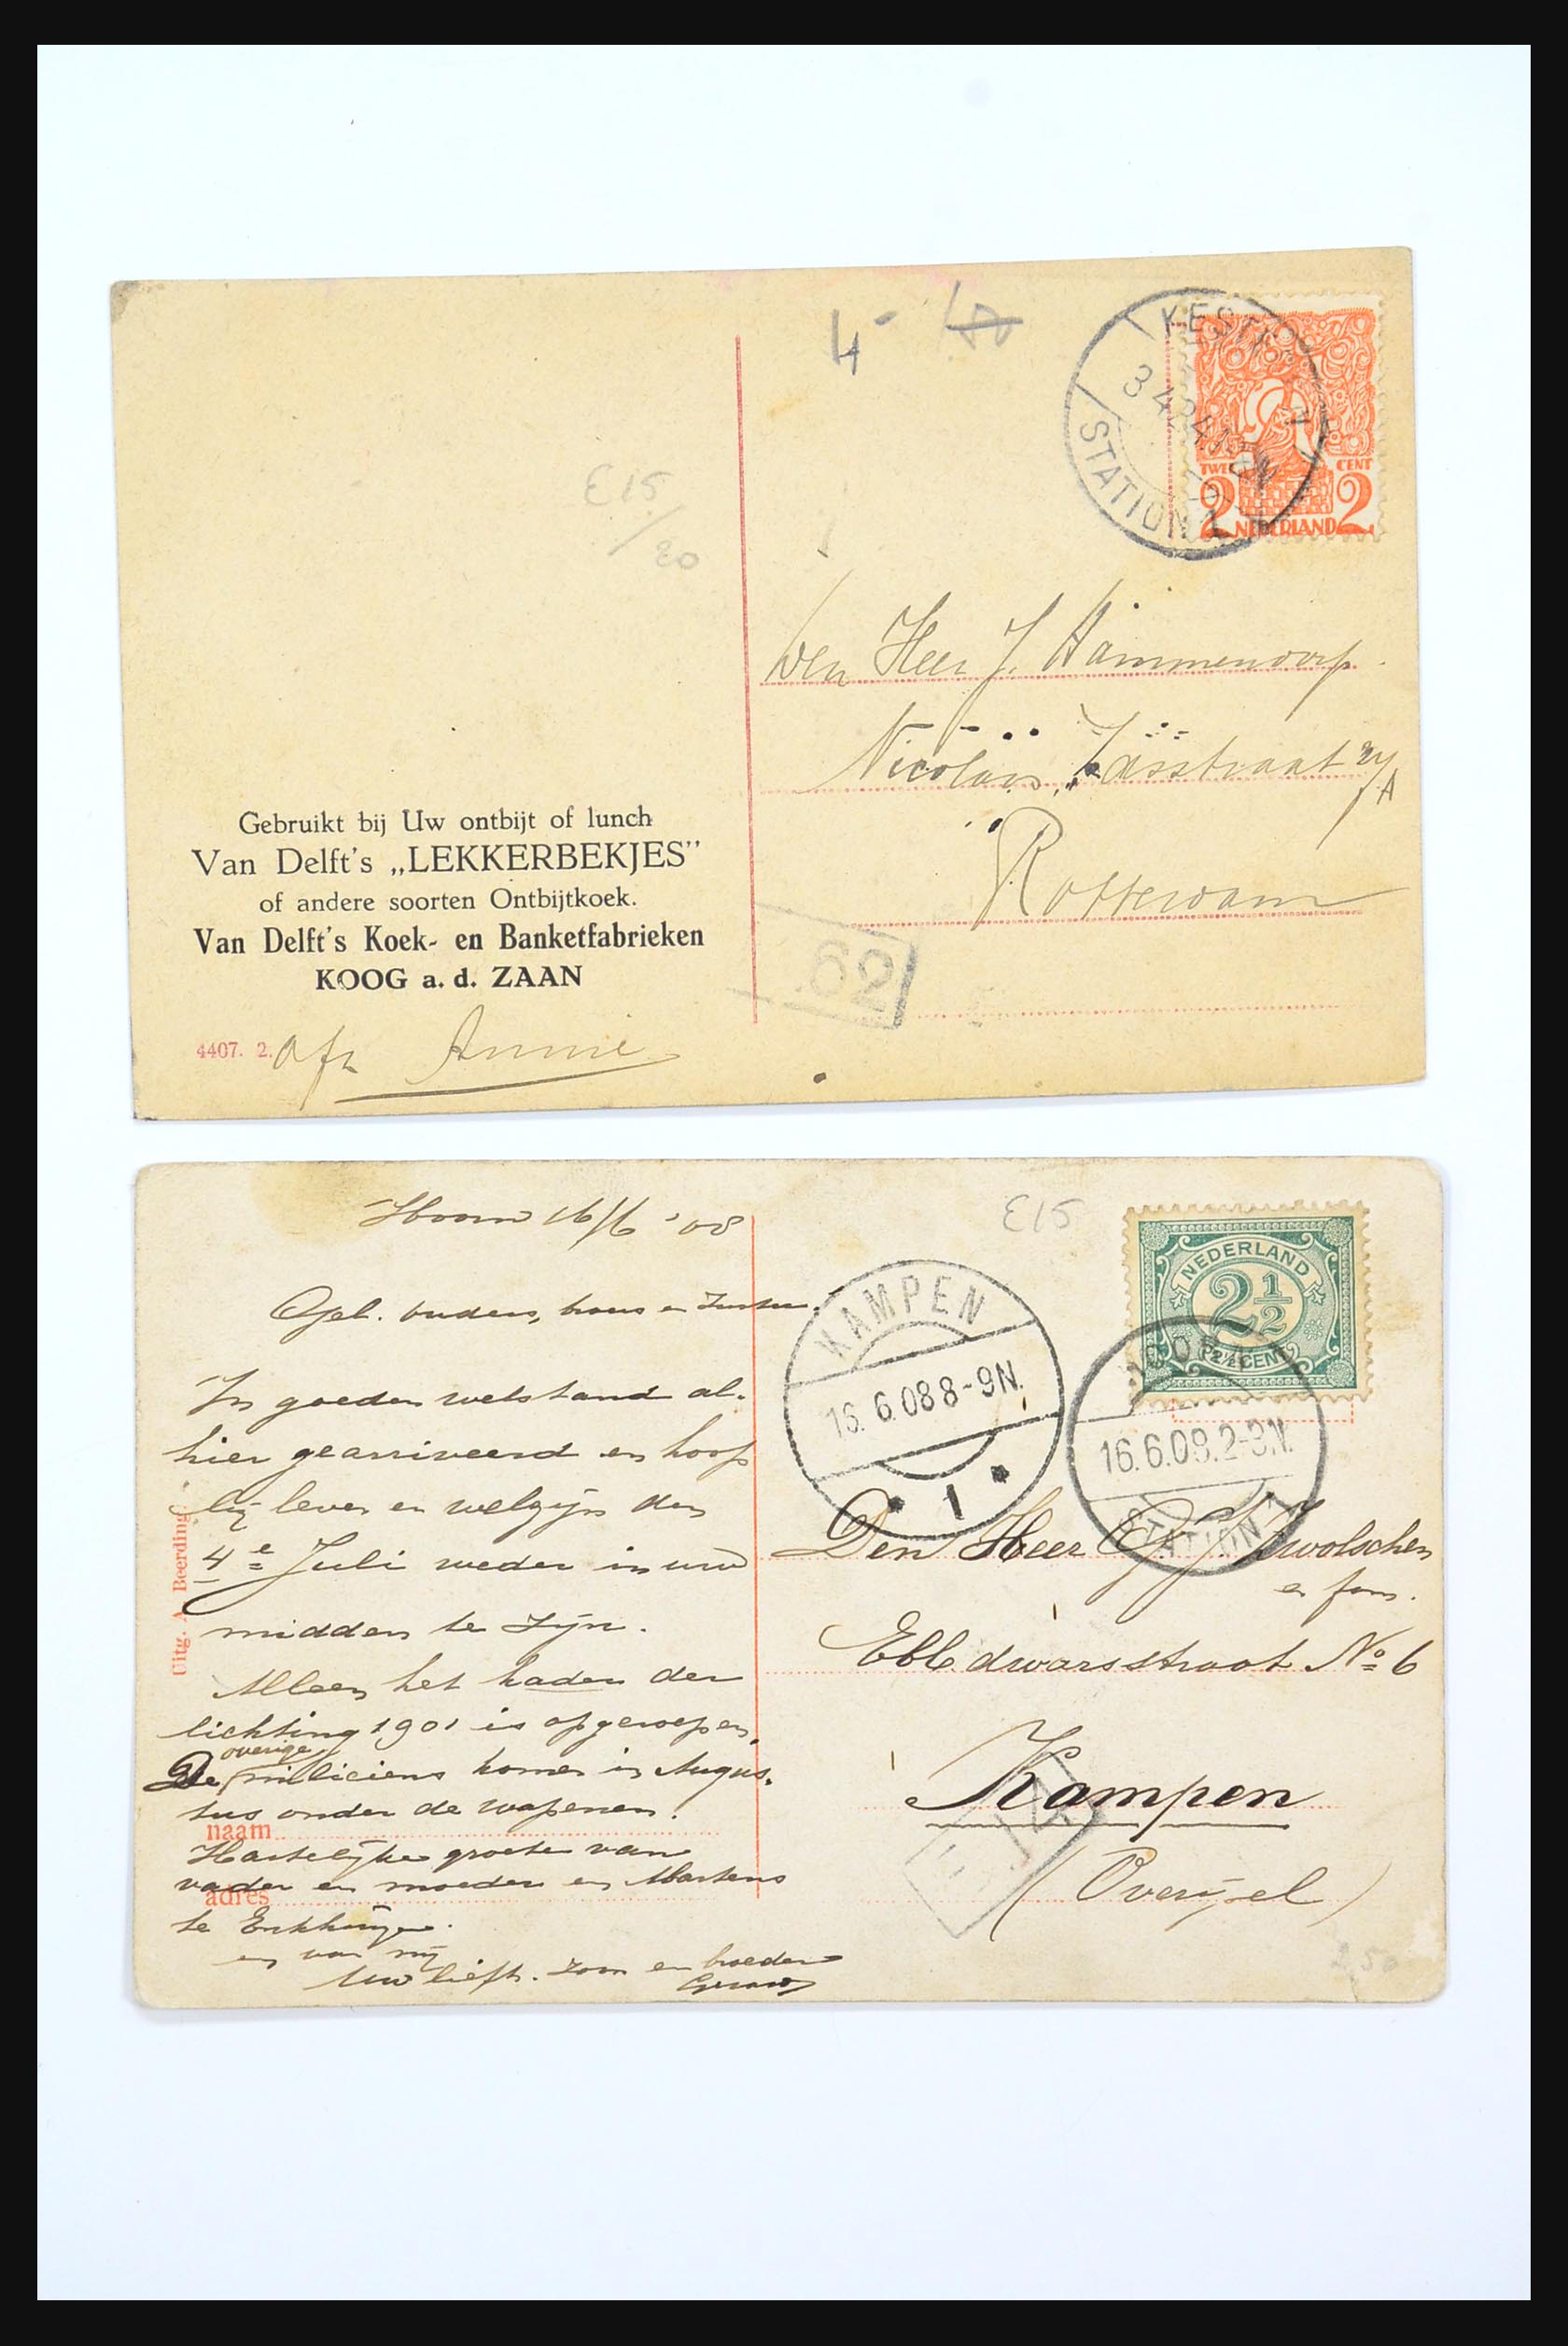 4-
E15
/
20
KESTEREN
3 4 24 12
STATION
TWEE CENT
2 NEDERLAND 2
Den Heer J. Hammendorp.
Nicolaas
A
Rotterdam
62
Gebruikt bij Uw ontbijt of lunch
Van Delft's „LEKKERBEKJES”
of andere soorten Ontbijtkoek.
Van Delft's Koek- en Banketfabrieken
KOOG a. d. ZAAN
4407. 2.
Afz Annie
Hoorn 16/6 '08
Gel. ouders, broers en Zuster.
In goeden welstand al-
hier gearriveerd en hoop
bij leven en welzijn den
4e Juli weder in uw
midden te Zijn.
Alleen het kader der
lichting 1901 is opgeroepen.
De overige miliciens komen in Augus-
tus onder de wapenen.
naam
Hartelijke groeten van
vader en moeder en Martens
adres
te Enkhuizen.
en van mij
Uw liefh. Zoon en broeder
Uitg. A. Beerding
E15
KAMPEN
16.6.08 8-9N.
* 1 *
NEDERLAND
2 1/2
2½ CENT
HOORN
16.6.08.2-3N.
STATION
Den Heer Zwolschen
en fam.
Ebb dwarsstraat No 6
Kampen
(Overijsel)
2,50